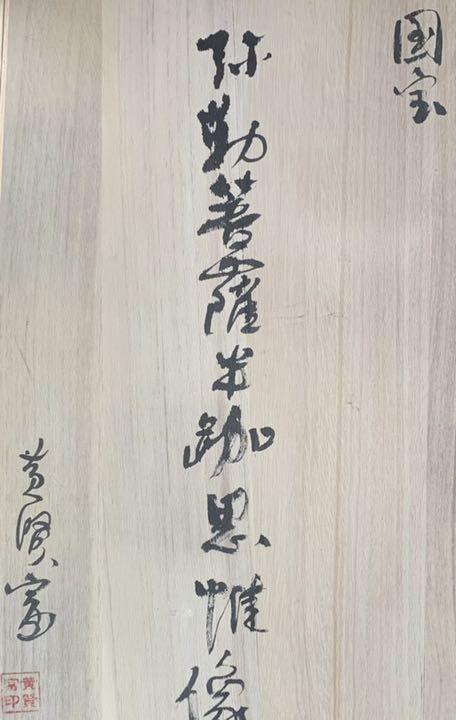 国宝
弥勒菩薩半跏思惟像
黄贤
黄賢
印